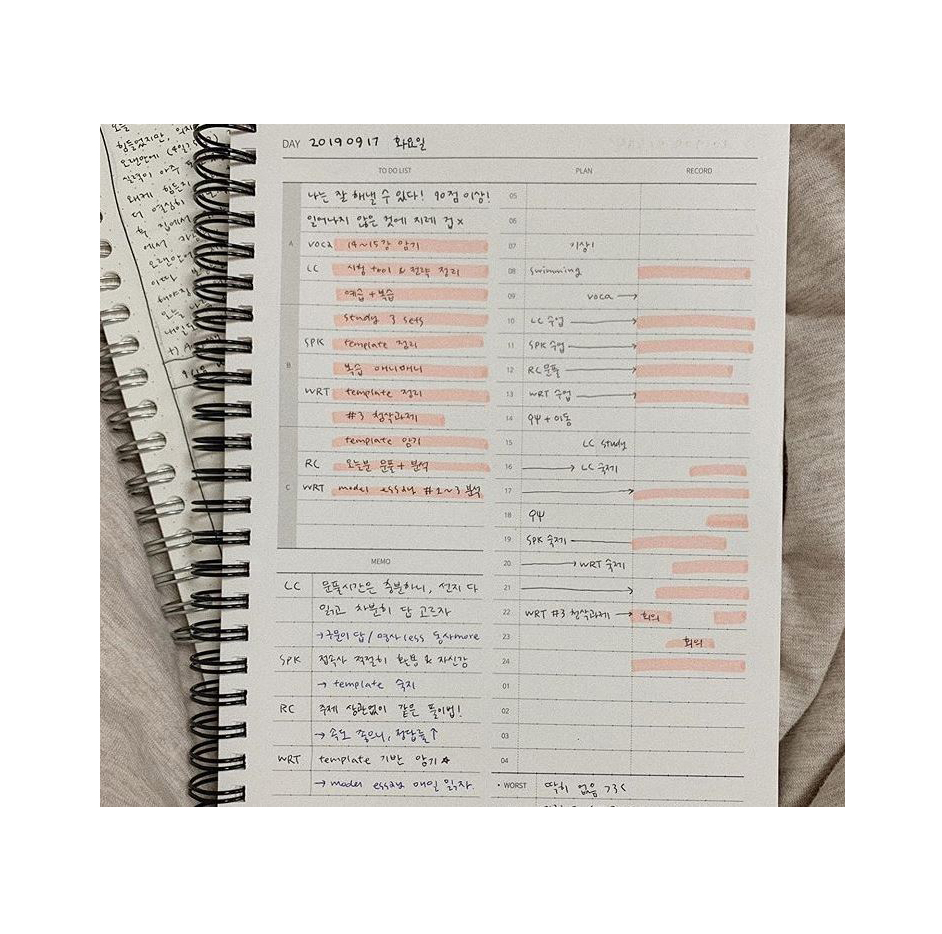 DAY 20190917 화요일
TO DO LIST
나는 잘 해낼 수 있다! 90점 이상!
일어나지 않은 것에 지레 겁 x
A voca 14~15강 암기
LC 시험 tool & 전략 정리
예습 + 복습
study 3 sets
SPK template 정리
B 복습
WRT template 정리
#3 첨삭과제
template 암기
RC 오늘분 문풀 + 분석
C WRT model essay #2~3 분석
MEMO
LC 문풀시간은 충분하니, 선지 다
읽고 차분히 답 고르자
→구문이 답 / 명사less 동사more
SPK 접속사 적절히 활용 & 자신감
→ template 숙지
RC 주제 상관없이 같은 풀이법!
→ 속도 좋으니, 정답률↑
WRT template 기반 암기
→ model essay 매일 읽자.
PLAN RECORD
05
06
07 기상!
08 swimming
09 voca →
10 LC 수업 →
11 SPK 수업 →
12 RC 문풀 →
13 WRT 수업 →
14 + 이동
15 LC study
16 → LC 숙제
17 →
18
19 SPK 숙제 →
20 → WRT 숙제
21 →
22 WRT #3 첨삭과제 → 회의
23 회의
24
01
02
03
04
• WORST 딱히 없음
힘들었지만,
오랜만에
실력이 아주
왜케 힘든지
더 열심히
집에서
에서
오랜만에